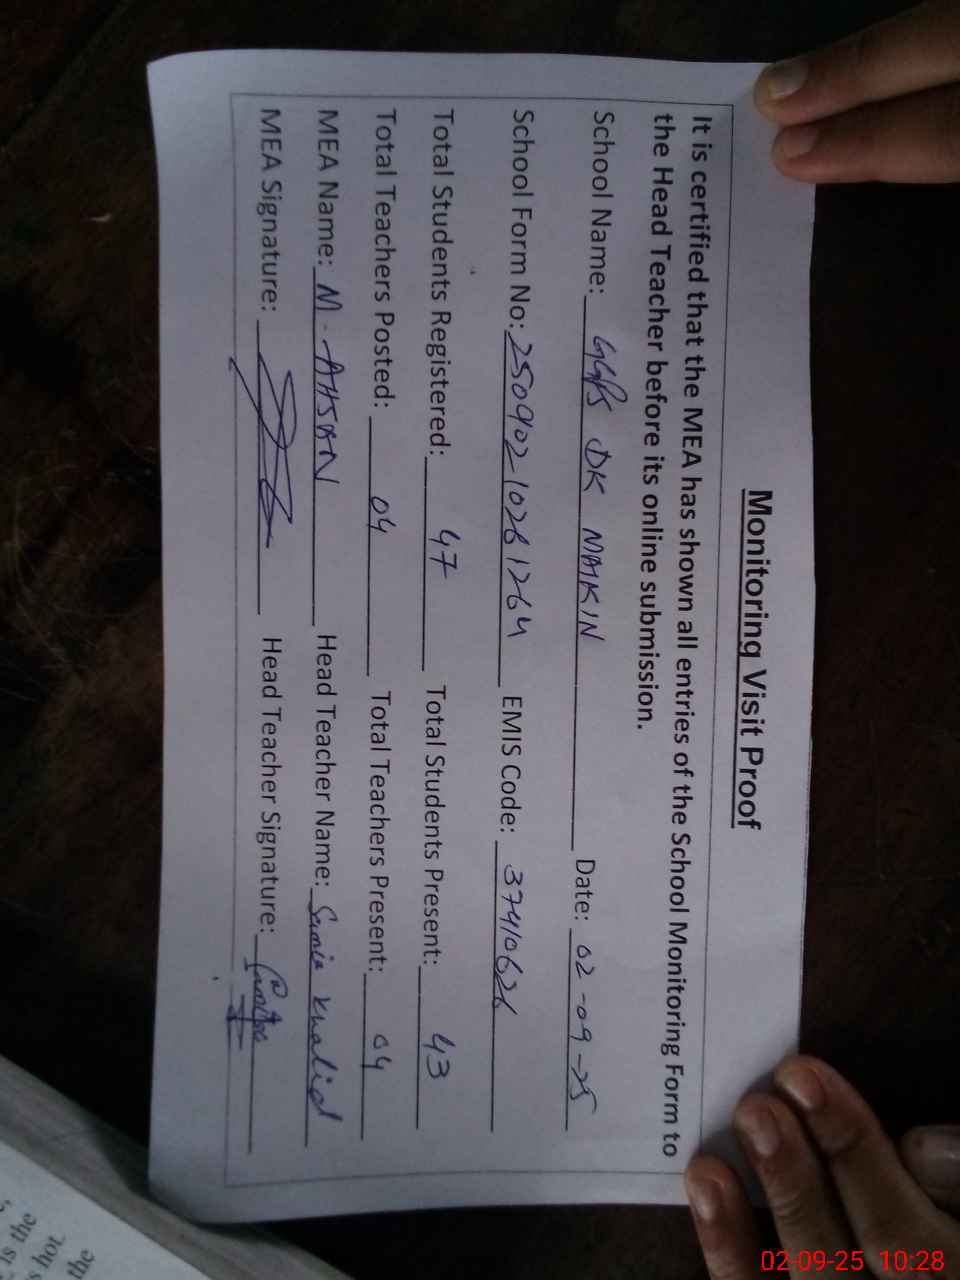 Monitoring Visit Proof
It is certified that the MEA has shown all entries of the School Monitoring Form to
the Head Teacher before its online submission.
School Name: GGPS DK MAIKIN Date: 02-09-25
School Form No: 25090210261264 EMIS Code: 37410626
Total Students Registered: 47 Total Students Present: 43
Total Teachers Posted: 04 Total Teachers Present: 04
MEA Name: M. AHSAN Head Teacher Name: Samia Khalid
MEA Signature: Head Teacher Signature:
is the
s hot.
the
02-09-25 10:28